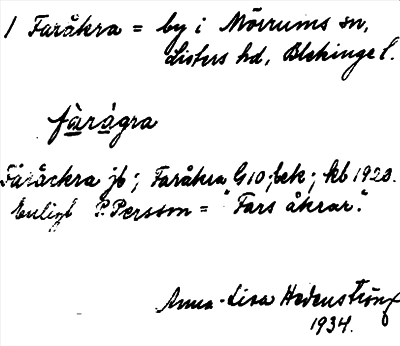 1 Faråkra = by i Mörrums sn,
Listers hd, Blekinge l.
fàrágra
Fåråckra jb; Faråkra G10; bek; kb 1923.
Enligt P. Persson = "Fars åkrar".
Anna-Lisa Hedenström
1934.